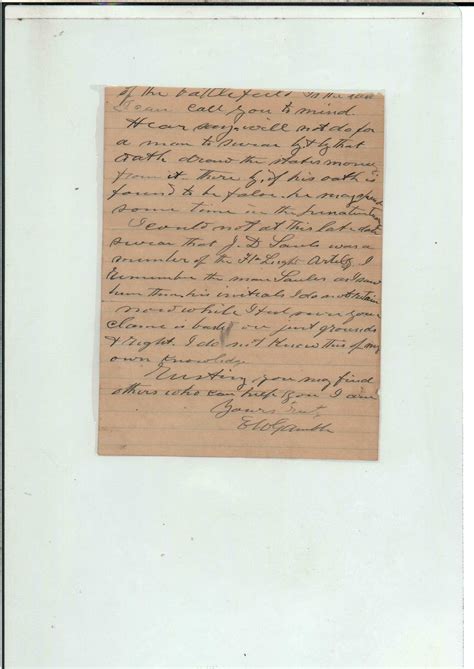 of the battlefield. Is the
I can call you to mind.
Hear say will not do for
a man to swear by & by that
oath draw the states money
from it. there by, if his oath is
found to be false. he may spend
some time in the penitentiary
I could not at this late date
swear that J. D. Sauls was a
member of the Fla Light Artlry I
remember the man Sauls as I saw
him then, his initials I do not retain
now while I feel sure your
claim is based on just grounds
& right. I do not know this of my
own knowledge.
Trusting you may find
others who can help you I am
Yours Truly
E W Gamble